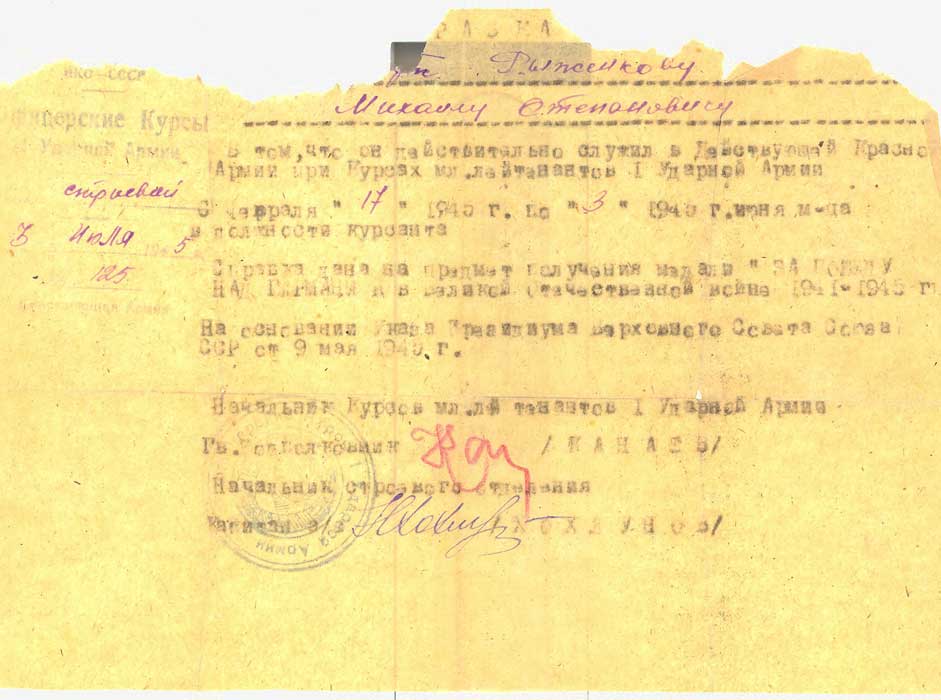 РАВКА
НКО-СССР
Рыженкову
Михаилу Степановичу
фицерские Курсы
Ударной Армии
В том, что он действительно служил в Действующей Красно
Армии при Курсах мл.лейтенантов I Ударной Армии
строевой
С февраля " 17 " 1945 г. по " 3 " 1945 г. июня м-ца
в должности курсанта
3 июля 1945
125
Справка дана на предмет получения медали " ЗА ПОБЕДУ
НАД ГЕРМАНИ й в Великой Отечественной войне 1941-1945 гг
Действующая Армия
На основании Указа Президиума Верховного Совета Союза
ССР от 9 мая 1945 г.
Начальник Курсов мл.лей тенантов I Ударной Армии
Гв. подполковник /КАНАЕВ/
Начальник строевого отделения
Капитан а/с /КОХЛУНОВ/
УДАРНОЙ АРМИИ